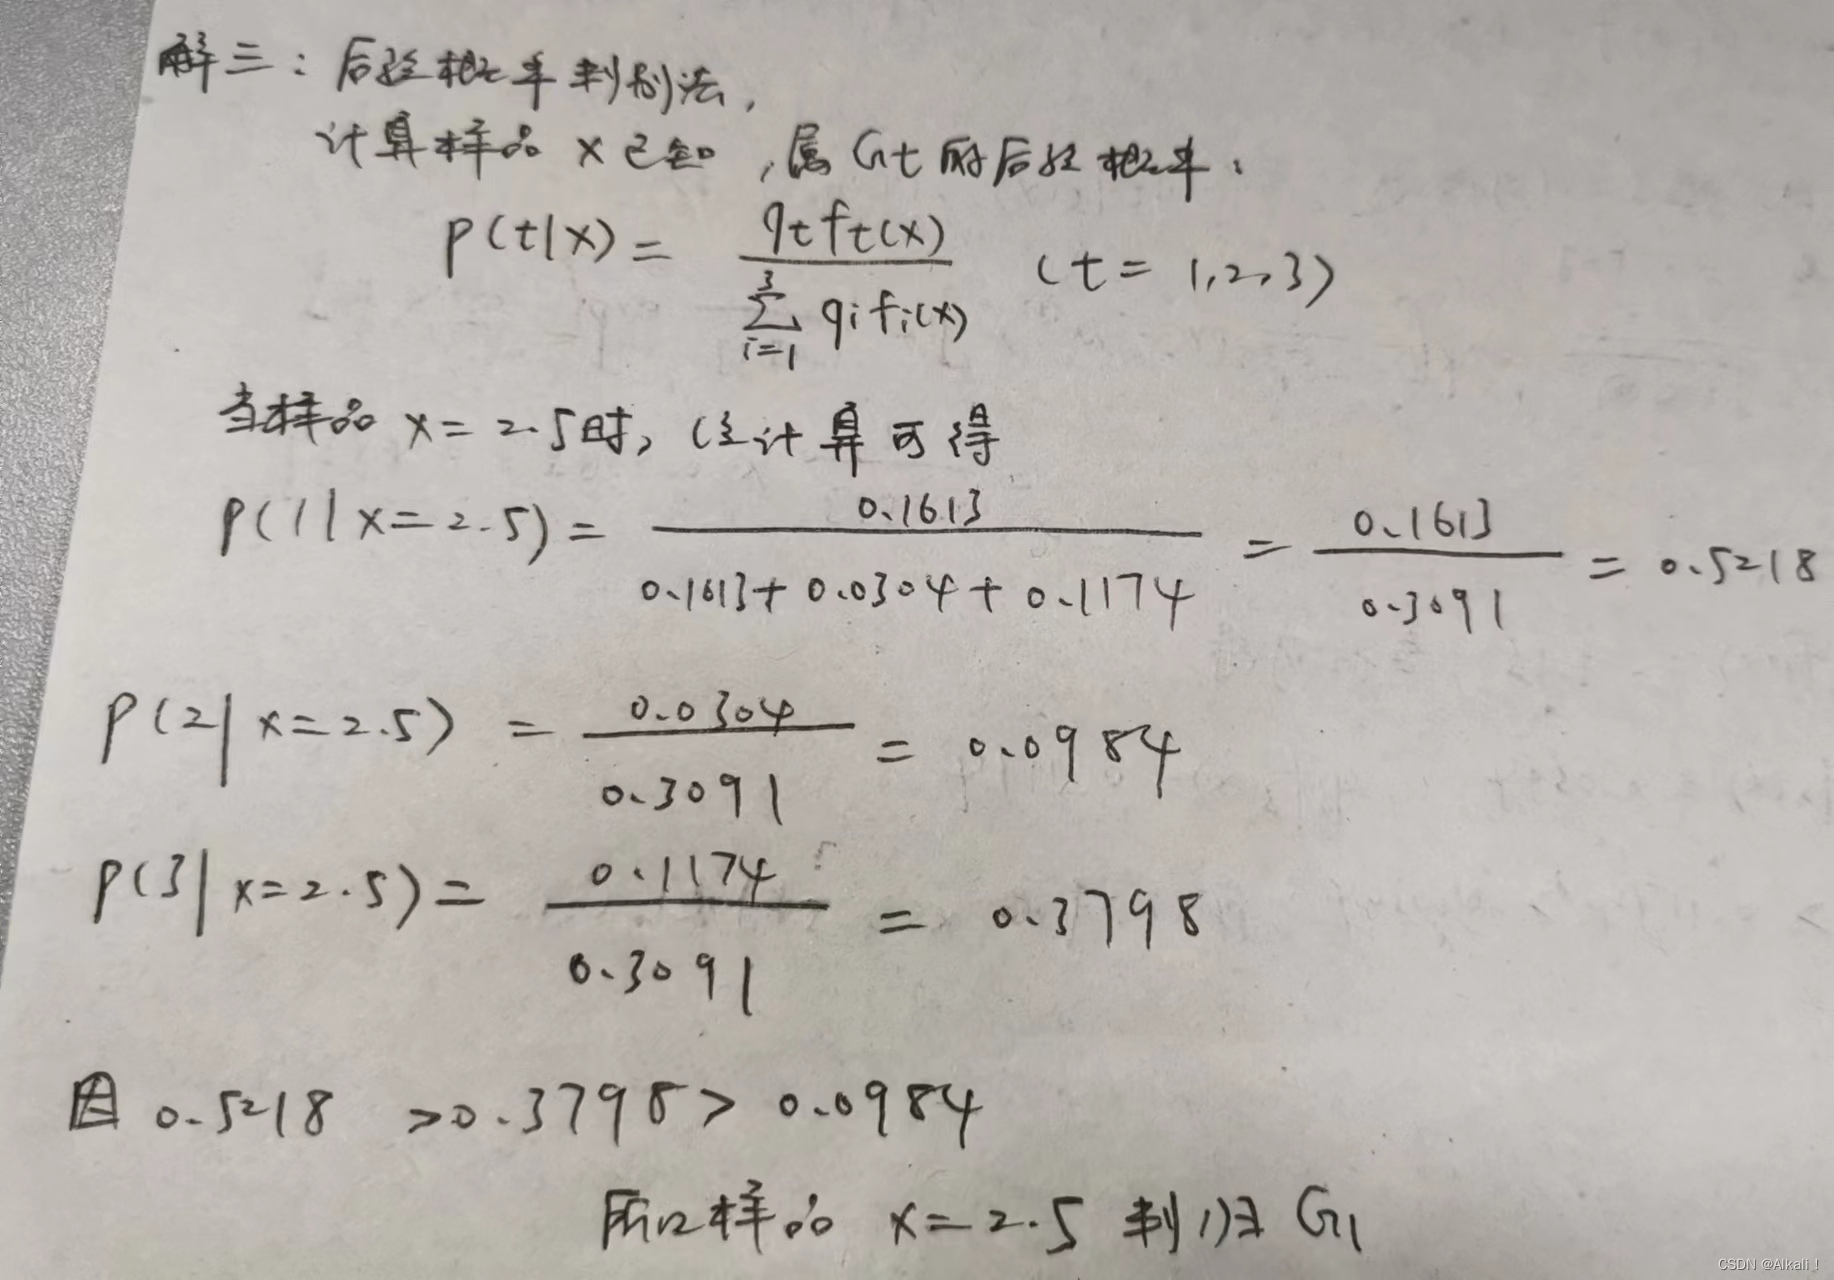 解三：后验概率判别法，
计算样品 x 已知，属 Gt 的后验概率：
P(t|x) = qtft(x) / ∑_{i=1}^{3} qifi(x) (t = 1,2,3)
当样品 x = 2.5时，经计算可得
P(1|x=2.5) = 0.1613 / (0.1613+0.0304+0.1174) = 0.1613 / 0.3091 = 0.5218
P(2|x=2.5) = 0.0304 / 0.3091 = 0.0984
P(3|x=2.5) = 0.1174 / 0.3091 = 0.3798
因 0.5218 >0.3798> 0.0984
所以样品 x=2.5 判归 G1
CSDN @Alkali！